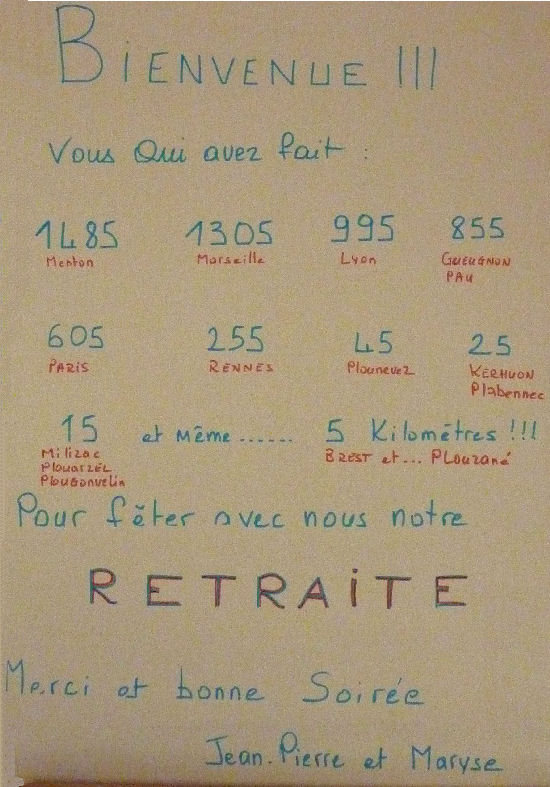 BIENVENUE !!!
Vous Qui avez fait :
1485 1305 995 855
Menton Marseille Lyon GUEUGNON
PAU
605 255 45 25
PARIS RENNES Plounevez KERHUON
Plabennec
15 et même ...... 5 Kilomètres !!!
Milizac BREST et... PLouzané
PLouarzEL
PLougonvelin
Pour fêter avec nous notre
RETRAiTE
Merci et bonne Soirée
Jean-Pierre et Maryse